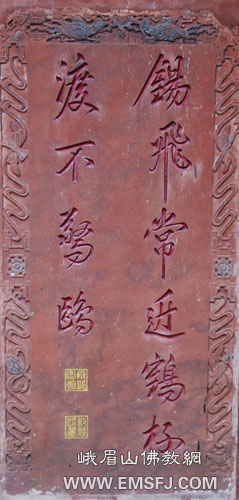 錫飛常近鶴杯
渡不驚鷗
峨眉山佛教網
WWW.EMSFJ.COM